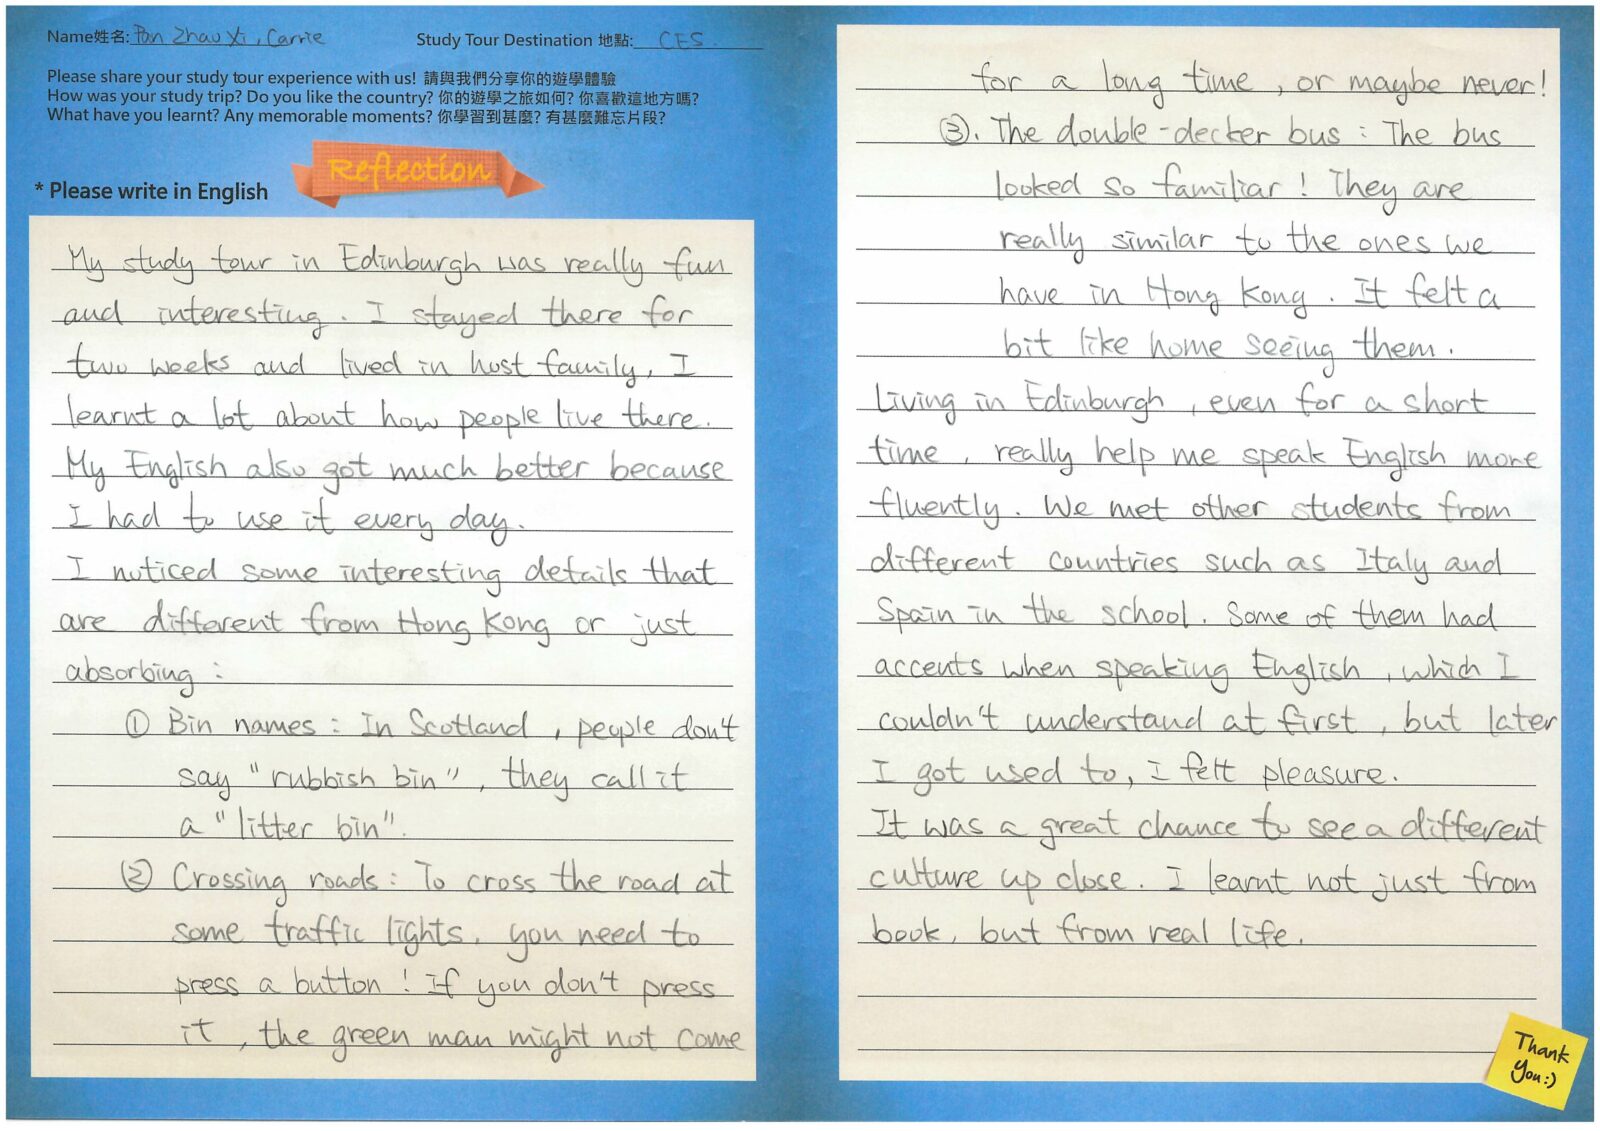 Name姓名: Pan Zhao Xi, Carrie
Study Tour Destination 地點: CES
Please share your study tour experience with us! 請與我們分享你的遊學體驗
How was your study trip? Do you like the country? 你的遊學之旅如何? 你喜歡這地方嗎?
What have you learnt? Any memorable moments? 你學習到甚麼? 有甚麼難忘片段?
Reflection
* Please write in English
My study tour in Edinburgh was really fun
and interesting. I stayed there for
two weeks and lived in host family, I
learnt a lot about how people live there.
My English also got much better because
I had to use it every day.
I noticed some interesting details that
are different from Hong Kong or just
absorbing:
① Bin names: In Scotland, people don't
say "rubbish bin", they call it
a "litter bin".
② Crossing roads: To cross the road at
some traffic lights, you need to
press a button! If you don't press
it, the green man might not come
for a long time, or maybe never!
③. The double-decker bus: The bus
looked so familiar! They are
really similar to the ones we
have in Hong Kong. It felt a
bit like home seeing them.
Living in Edinburgh, even for a short
time, really help me speak English more
fluently. We met other students from
different countries such as Italy and
Spain in the school. Some of them had
accents when speaking English, which I
couldn't understand at first, but later
I got used to, I felt pleasure.
It was a great chance to see a different
culture up close. I learnt not just from
book, but from real life.
Thank
You:)